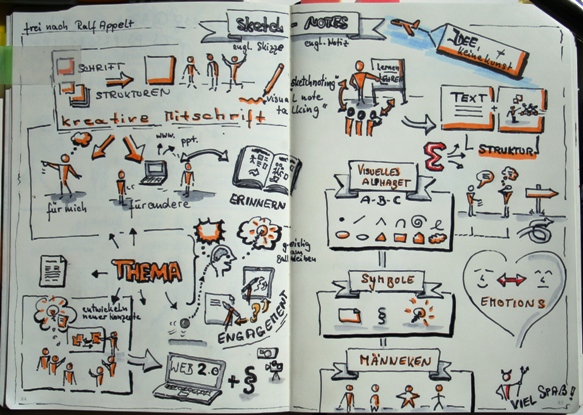 frei nach Ralf Appelt
Sketch
engl. Skizze
SCHRIFT
STRUKTUREN
kreative Mitschrift
www.
ppt.
für mich
für andere
ERINNERN
THEMA
geistig
am
Ball bleiben
entwickeln
neuer Konzepte
ENGAGEMENT
WEB 2.0
+ §
NOTES
engl. Notiz
IDEE +
keine Kunst
"Sketchnoting"
Visual note
talking"
Lernen
TEXT
+
STRUKTUR
VISUELLES
ALPHABET
A-B-C
SYMBOLE
§
EMOTIONS
MÄNNEKEN
VIEL SPAß!